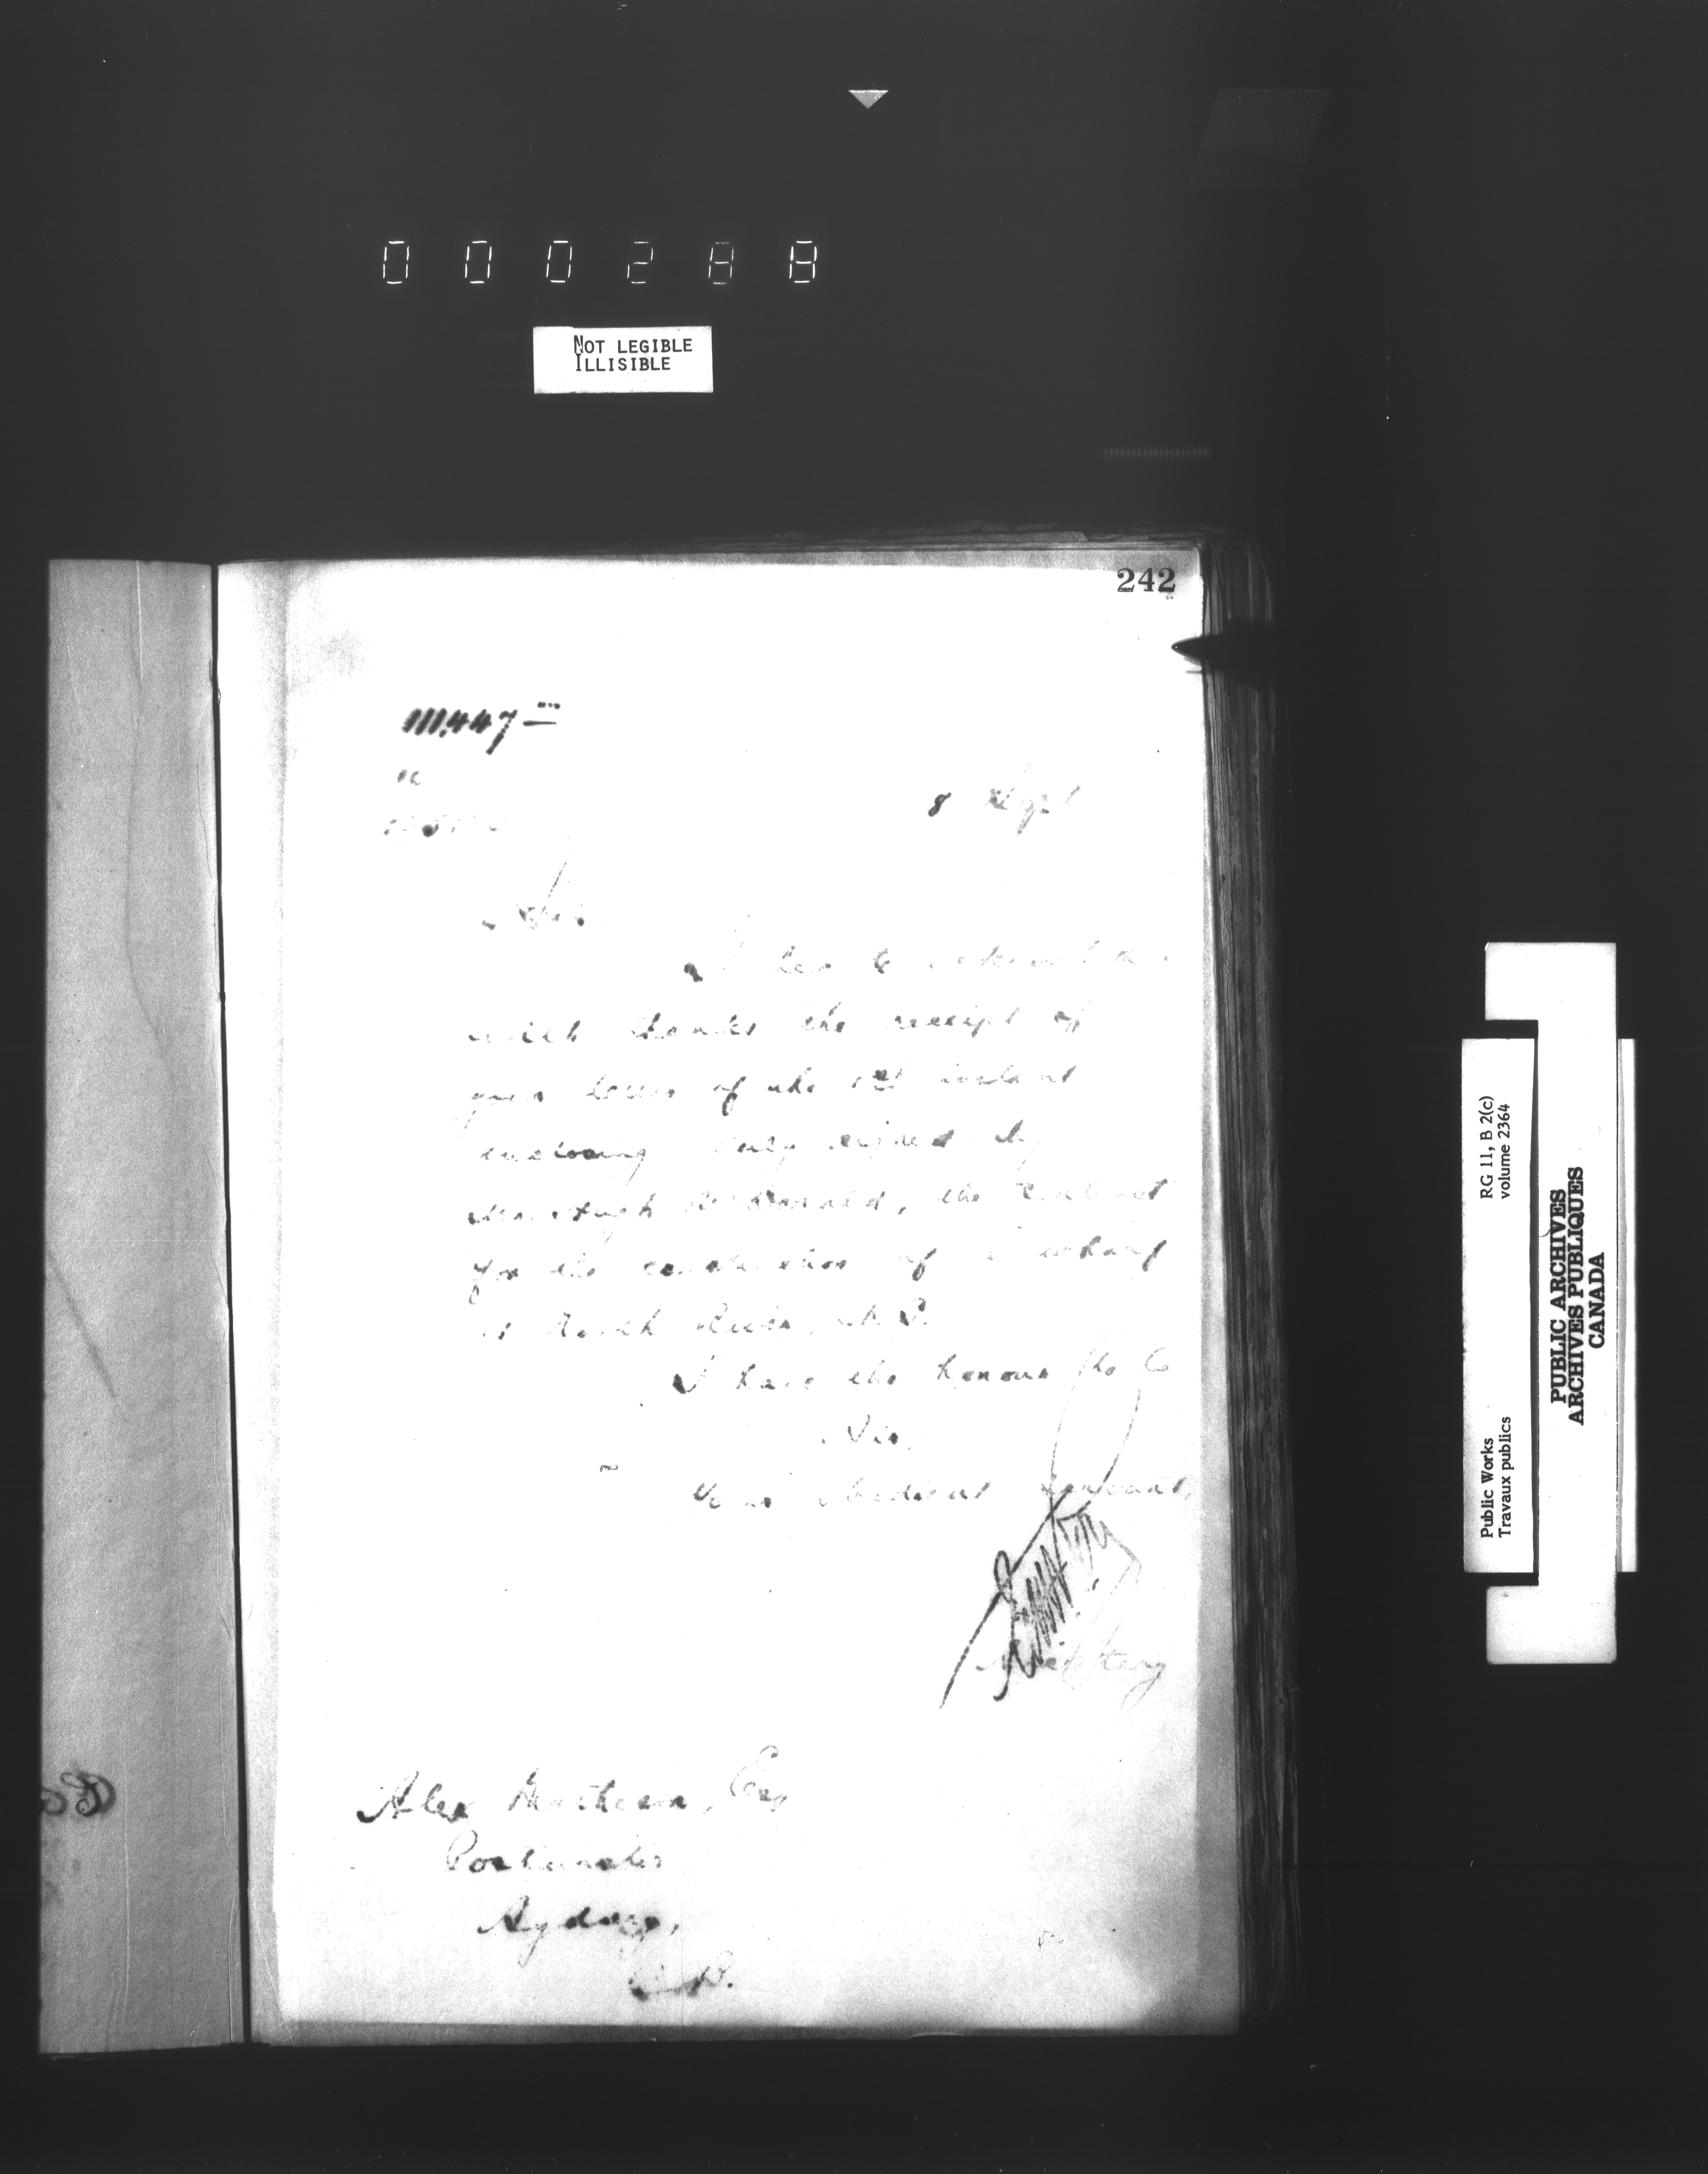 000288
NOT LEGIBLE
ILLISIBLE
242
111,447
8 Sept
Sir
I beg to
with thanks the receipt of
your letter of the 1st instant
enclosing duly signed by
Mr. Hugh McDonald, the Contract
for the construction of a wharf
at North River, N.S.
I have the honour to be
Sir,
Your obedient servant,
Alex Matheson, Esq
Postmaster
Sydney,
C.B.
Public Works
Travaux publics
RG 11, B 2(c)
volume 2364
PUBLIC ARCHIVES
ARCHIVES PUBLIQUES
CANADA